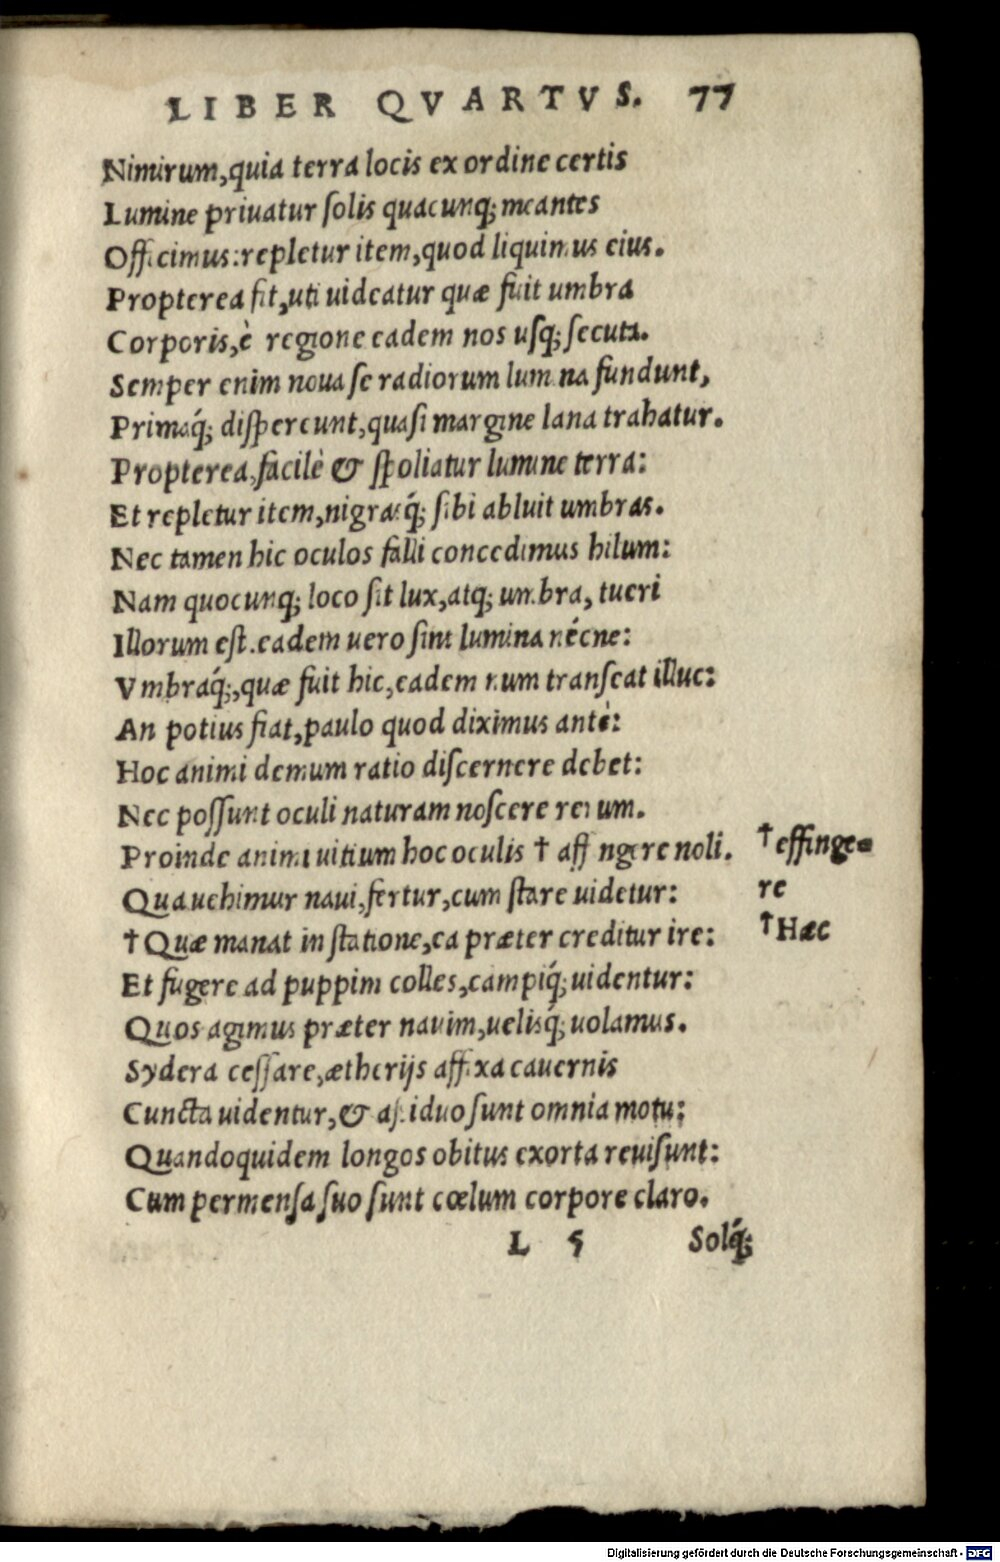 LIBER QVARTVS. 77
Nimirum, quia terra locis ex ordine certis
Lumine priuatur ſolis quacunq; meantes
Officimus: repletur item, quod liquimus eius.
Propterea fit, uti uideatur quæ fuit umbra
Corporis, è regione eadem nos uſq; ſecuta.
Semper enim noua ſe radiorum lumina fundunt,
Primaq́; diſpereunt, quaſi margine lana trahatur.
Propterea, facilè & ſpoliatur lumine terra:
Et repletur item, nigrasq́; ſibi abluit umbras.
Nec tamen hic oculos falli concedimus hilum:
Nam quocunq; loco ſit lux, atq; umbra, tueri
Illorum eſt. eadem uero ſint lumina nécne:
Vmbraq́;, quæ fuit hic, eadem num tranſeat illuc:
An potius fiat, paulo quod diximus antè:
Hoc animi demum ratio diſcernere debet:
Nec poſſunt oculi naturam noſcere rerum.
Proinde animi uitium hoc oculis † affingere noli. † effinge=
Qua uehimur naui, fertur, cum ſtare uidetur: re
† Quæ manat in ſtatione, ea præter creditur ire: † Hæc
Et fugere ad puppim colles, campiq́; uidentur:
Quos agimus præter nauim, uelisq́; uolamus.
Sydera ceſſare, ætherijs affixa cauernis
Cuncta uidentur, & aſſiduo ſunt omnia motu:
Quandoquidem longos obitus exorta reuiſunt:
Cum permenſa ſuo ſunt cœlum corpore claro.
L 5 Solq́;
Digitalisierung gefördert durch die Deutsche Forschungsgemeinschaft - DFG